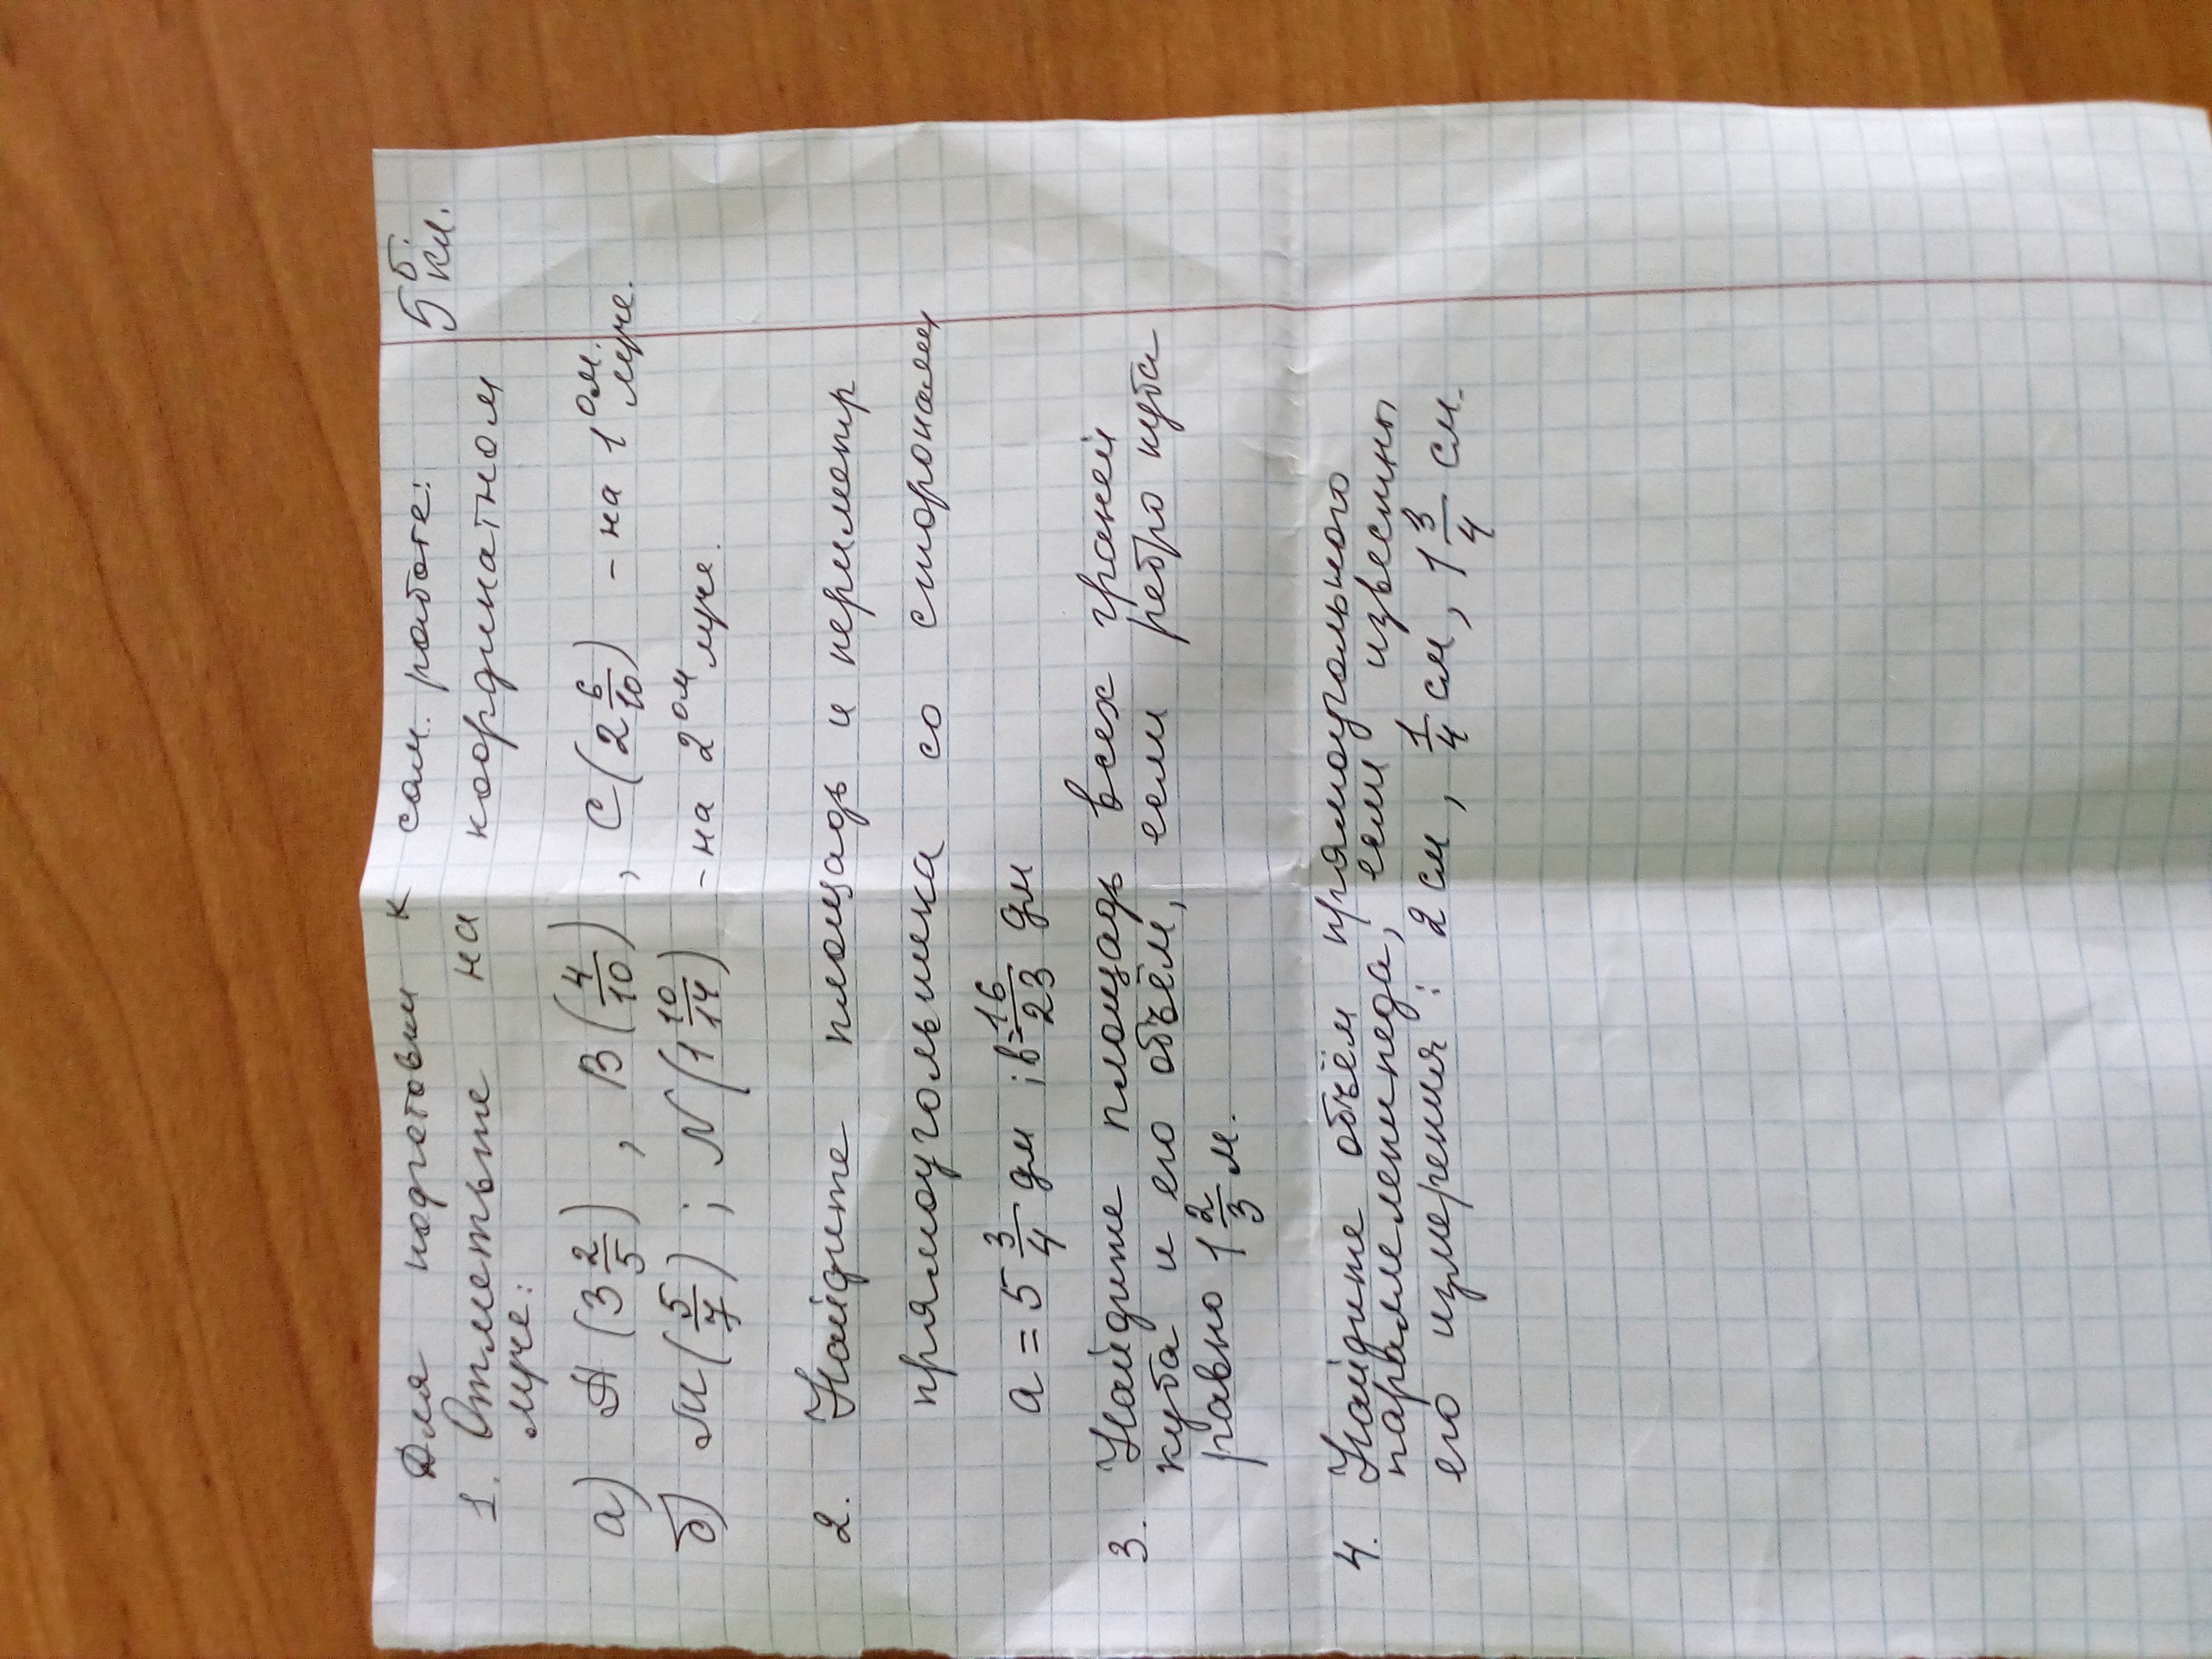 Для подготовки к сам. работе: 5б кл.
1. Отметьте на координатном
луче:
а) А (3 2/5) , В (4/10) , С (2 6/10) – на 1ом луче.
б) М (5/7) ; N (1 10/14) – на 2ом луче.
2. Найдите площадь и периметр
прямоугольника со сторонами
а = 5 3/4 дм ; в = 16/23 дм
3. Найдите площадь всех граней
куба и его объём, если ребро куба
равно 1 2/3 м.
4. Найдите объём прямоугольного
параллелепипеда, если известны
его измерения: 2 см , 1/4 см , 1 3/4 см.